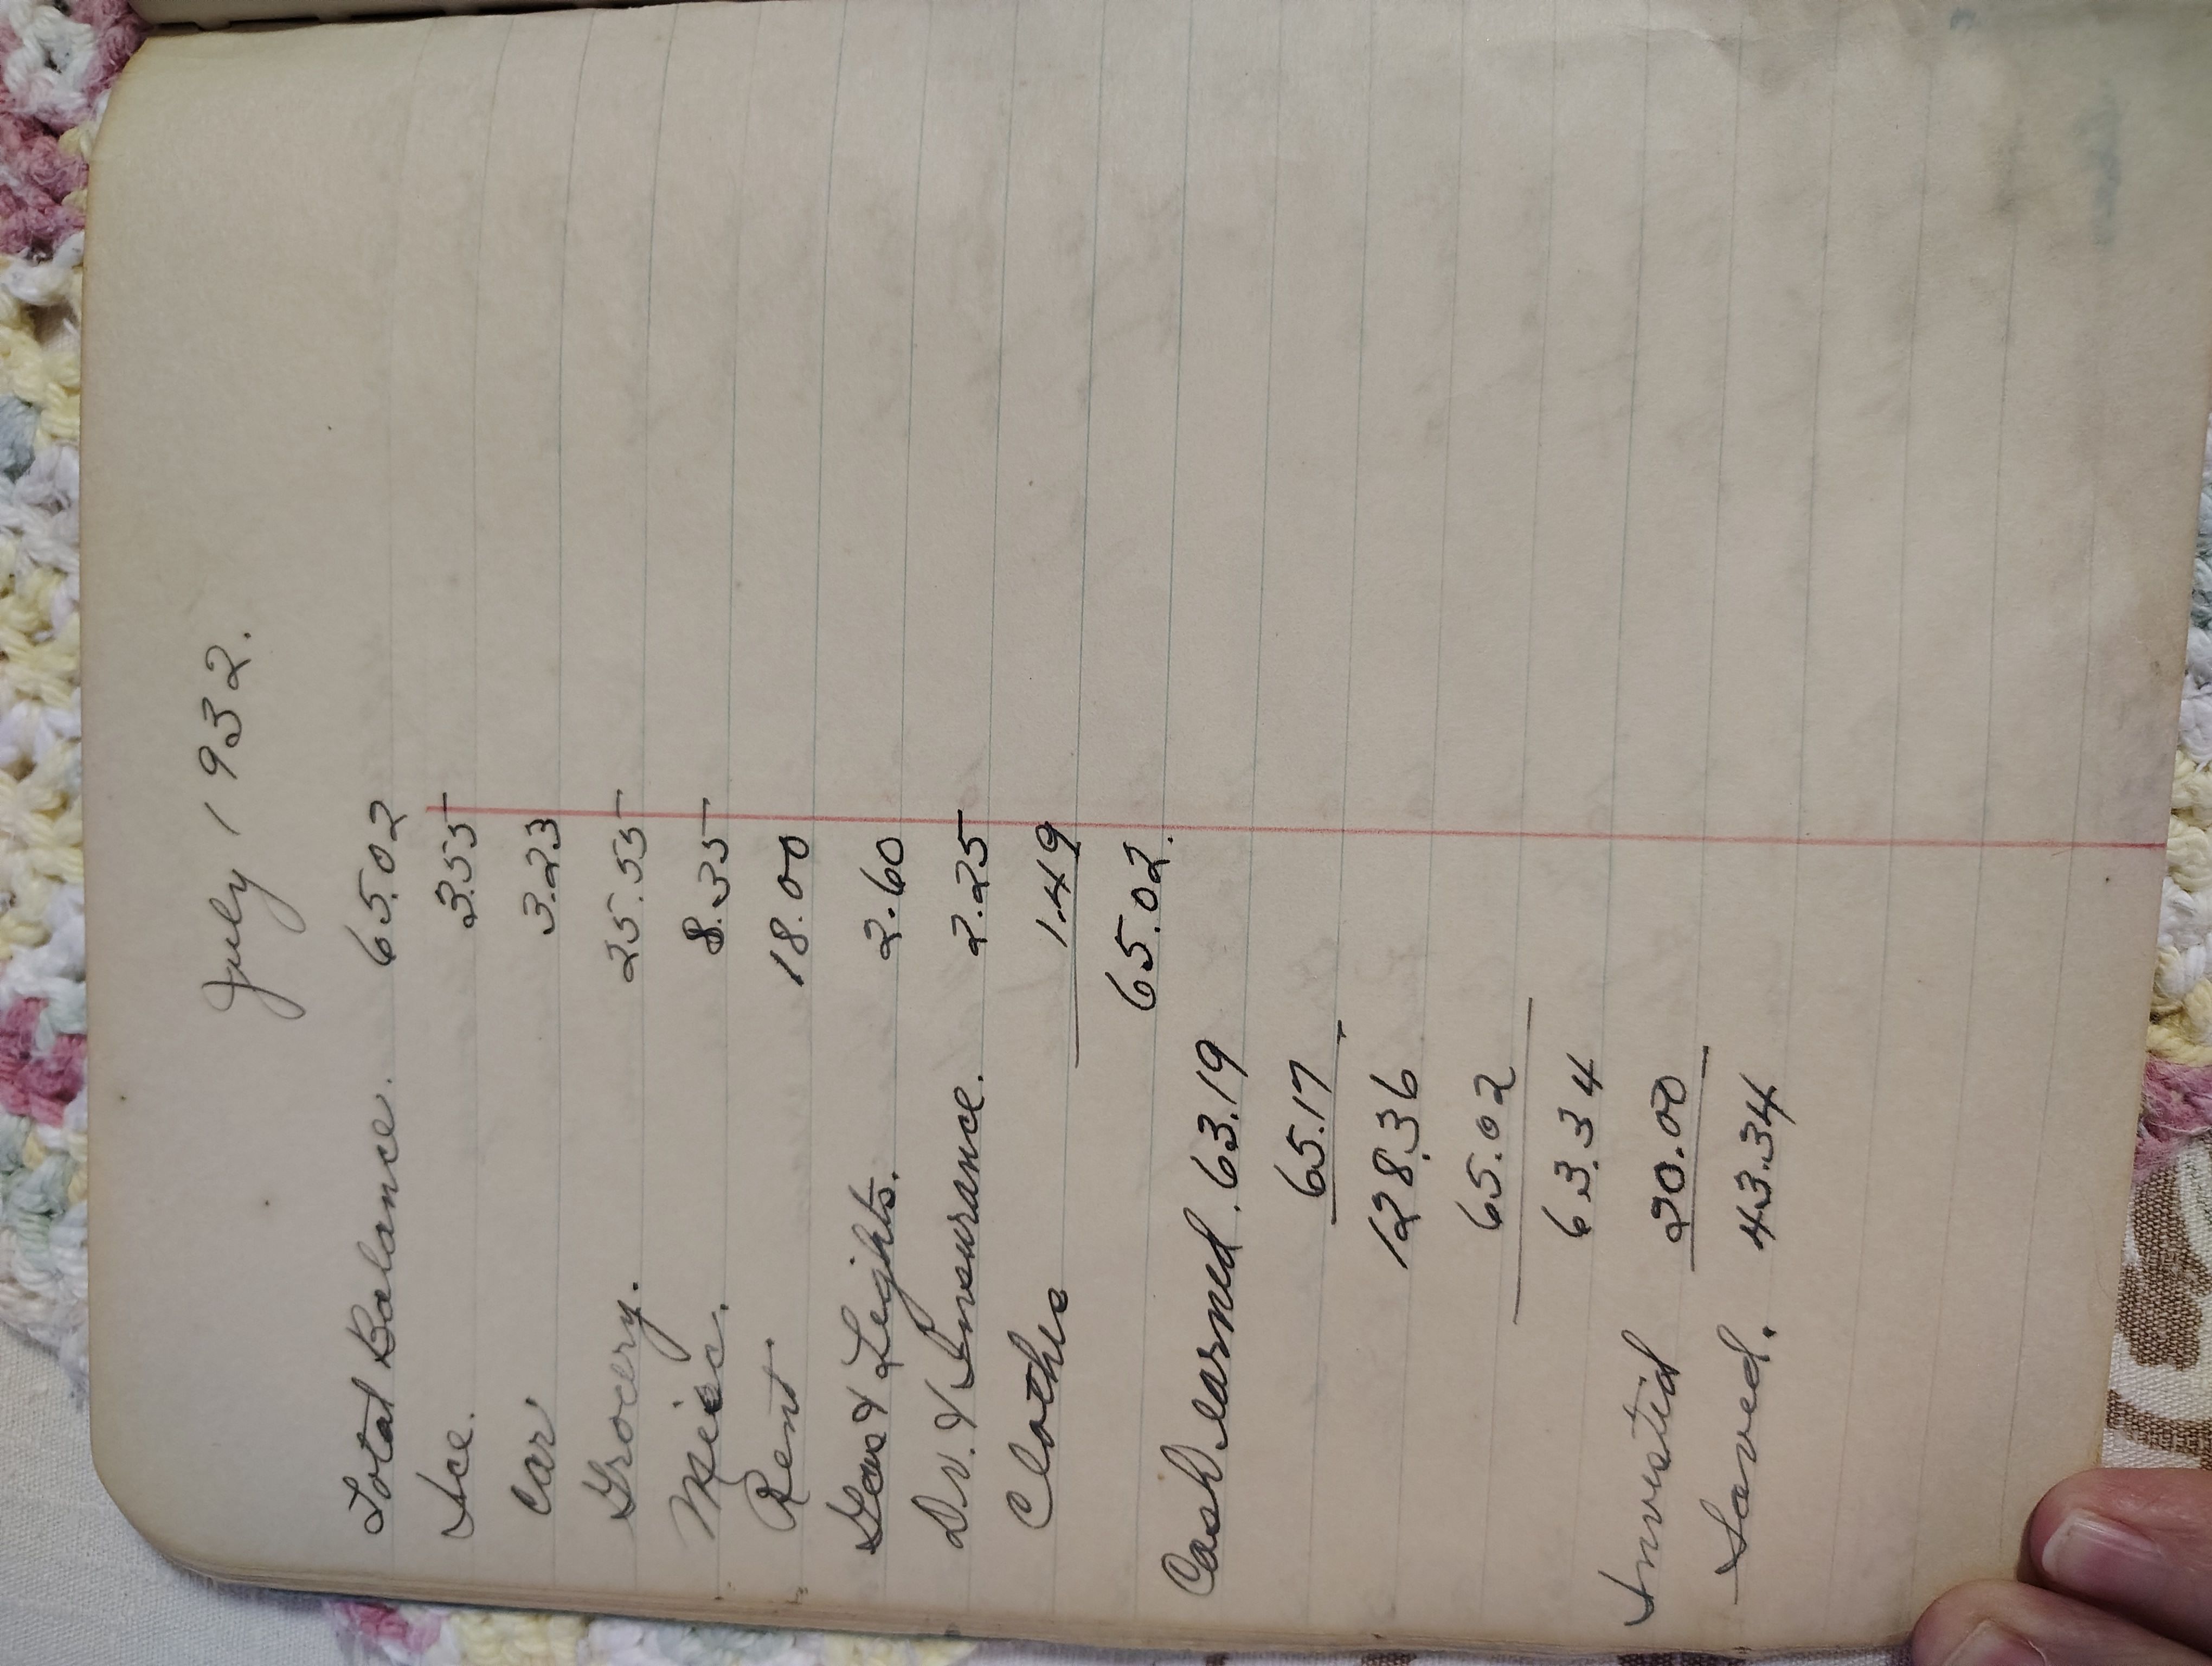 July 1932.
Total Balance. 65.02
Ice. 3.55
Car 3.23
Grocery. 25.55
Misc. 8.35
Rent 18.00
Gas & Lights. 2.60
Dr. & Insurance. 2.25
Clothes 1.49
65.02.
Cash earned. 63.19
65.17
128.36
65.02
63.34
Invested 20.00
Saved. 43.34